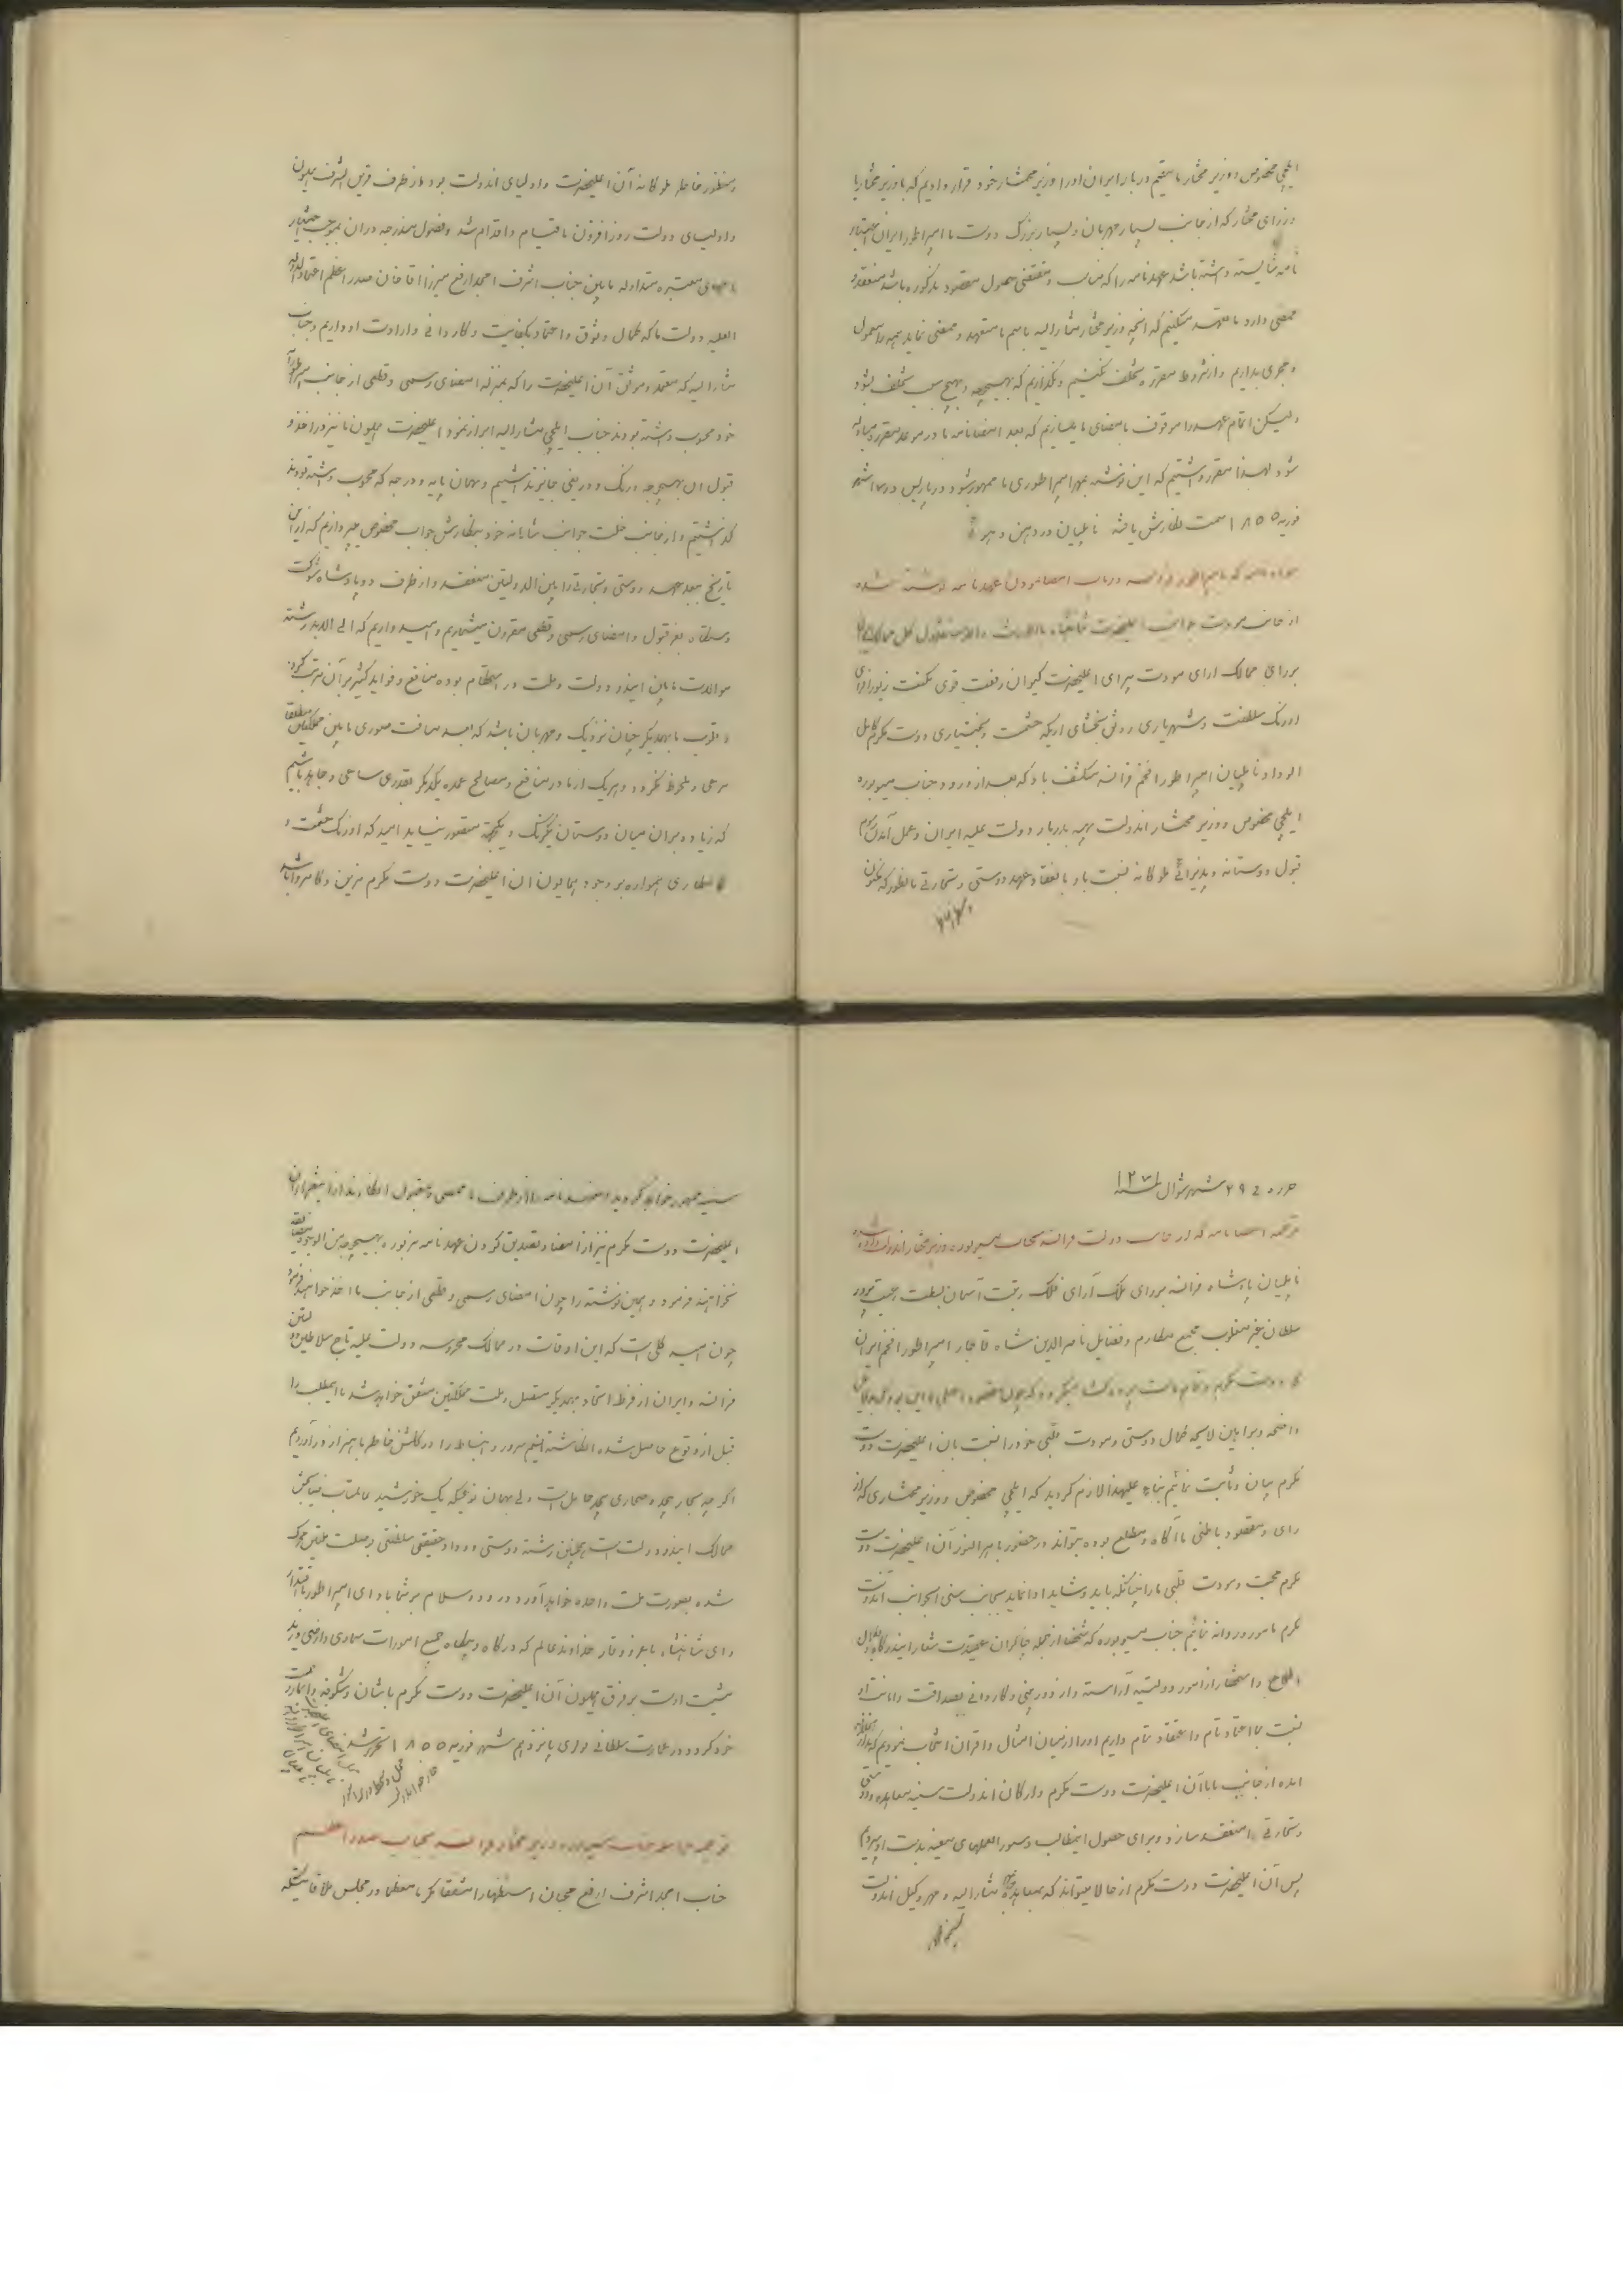 ایلچی مخصوص و وزیر مختار ما مقیم دربار ایران اورا وزیر مختار خود قرار دادیم که با وزیر مختار یا
وزرای مختار که از جانب بسیار مهربان و بسیار بزرگ دوست ما امپراطور ایران اختیار
نامه شایسته داشته باشد عهدنامه را که مناسب و مقتضی حصول مقصود مذکوره باشد منعقد و
ممضی دارد ما متعهد میکنیم که آنچه وزیر مختار مشارالیه باسم ما متعهد و ممضی نماید همه را معمول
و مجری بداریم و از شروط مقرره تخلف نکنیم و نگذاریم که بهیچوجه و بهیچ سبب تخلف بشود
ولیکن اتمام عهد را موقوف بامضای ما بسازیم که بعد امضانامه ما در موعد مقرره مبادله
شود لهذا مقرر داشتیم که این نوشته بمهر امپراطوری ما ممهور شود و در پاریس در ماه شهر
فوریه ۱۸۵۵ سمت نگارش یافته ناپلیان دردهن دهر
سواد نامه که بامپراطور فرانسه در باب امضا نمودن عهدنامه نوشته شده
از جانب مودت جوانب اعلیحضرت شاهنشاه بالارث والاستقلال کل ممالک ایران
بر رای ممالک آرای مودت پیرای اعلیحضرت کیوان رفعت قوی مکنت زیور افزای
اورنگ سلطنت و شهریاری رونق بخشای اریکه حشمت و بختیاری دوست مکرم کامل
الوداد ناپلیان امپراطور افخم فرانسه منکشف باد که بعد از ورود جناب مسیو بوره
ایلچی مخصوص و وزیر مختار آندولت بهیه بدربار دولت علیه ایران و عمل آمدن رسوم
قبول دوستانه و پذیرائی ملوکانه نسبت باو بانعقاد عهد دوستی و تجارتی بانطور که مکنون
و منظور خاطر ملوکانه آن اعلیحضرت و اولیای آندولت بود از طرف قرین الشرف همایون
و اولیای دولت روزافزون ما قیام و اقدام شد و فصول مندرجه در آن بموجب اختیار
نامهای معتبره متداوله مابین جناب اشرف امجد ارفع میرزا آقا خان صدر اعظم اعتمادالدوله
العلیه دولت ما که کمال وثوق و اعتماد بکفایت و کاردانی و ارادت او داریم و جناب
مشارالیه که معتمد و موثق آن اعلیحضرت را که بمنزله امضای رسمی و قطعی از جانب
خود محسوب داشته بودند جناب ایلچی مشارالیه ابراز نمود اعلیحضرت همایون ما نیز در اخذ و
قبول آن بهیچوجه درنگ و دریغی جایز نداشتیم و بهمان پایه و درجه که محسوب داشته بودند
گذاشتیم و از جانب خلت جوانب شاهانه خود بنگارش جواب مخصوص میپردازیم که از این
تاریخ ببعد عهد دوستی و تجارتی را بین الدولتین منعقد و از طرف دو پادشاه شوکت
دستگاه بعز قبول و امضای رسمی و قطعی مقرون میشماریم و امیدواریم که الی الابد رشته
موالات مابین ایندو دولت و ملت در استحکام بوده منافع و فواید کثیره بر آن مترتب گردد
و قلوب با یکدیگر چنان نزدیک و مهربان باشد که بعد مسافت صوری مابین مملکتین مطلقا
مرعی و ملحوظ نگردد و هر یک از ما در منافع و مصالح عمده یکدیگر بقدری ساعی و جاهد باشیم
که زیاده بر آن میان دوستان یکرنگ و یکجهت متصور نیاید امید که اورنگ حشمت و
همواره بر وجود همایون آن اعلیحضرت دوست مکرم مزین و کامروا باشد
حرره فی ۲۹ شهر شوال سنه ۱۲۷۱
ترجمه امضانامه که از جانب دولت فرانسه بجناب مسیو بوره وزیر مختار آندولت داده شده
ناپلیان پادشاه فرانسه بر رای ملک آرای فلک رتبت آسمان بسطت
سلطان غیر مغلوب مجمع مکارم و فضایل ناصرالدین شاه قاجار امپراطور افخم ایران
واضحه و براهین لایحه کمال دوستی و مودت قلبی خود را نسبت بان اعلیحضرت دوست
مکرم بیان و ثابت نمائیم بناء علیهذا لازم گردید که ایلچی مخصوص و وزیر مختاری که از
رای و مقصود باطنی ما آگاه و مطلع بوده بتواند در حضور باهرالنور آن اعلیحضرت دوست
مکرم محبت و مودت قلبی ما را چنانکه باید و شاید ادا نماید بجانب سنی الجوانب آندوست
مکرم مامور و روانه نمائیم جناب مسیو بوره که شخصا از جمله چاکران عقیدت شعار ایندرگاه و بکمال
اطلاع و استحضار از امور دولتیه آراسته و از دوربینی و کاردانی بصداقت و امانت او
نسبت بما اعتماد تام و اعتقاد تمام داریم او را از میان امثال و اقران انتخاب نمودیم که
از جانب ما با آن اعلیحضرت دوست مکرم و ارکان آندولت سنیه معاهده دوستی
و تجارتی منعقد سازد و برای حصول اینمطالب دستورالعملهای معینه بدست او سپردیم
پس آن اعلیحضرت دوست مکرم از حالا میتواند که بمعاهده مشارالیه و مهر وکیل آندولت
سنیه ممهور خواهد گردید عهدنامه را از طرف ما ممضی و مقبول انگارند از اینقرار آن
اعلیحضرت دوست مکرم نیز از امضا و تصدیق کردن عهدنامه مزبوره بهیچوجه من الوجوه مضایقه
نخواهند فرمود و همین نوشته را چون امضای رسمی و قطعی از جانب ما اخذ خواهند فرمود
چون امید کلی است که این اوقات در ممالک محروسه دولت علیه تاج سلاطین دولتین
فرانسه و ایران از فرط اتحاد بیکدیگر متصل و ملت مملکتین متفق خواهد شد ما اینمطلب را
قبل از وقوع حاصل شده انگاشته نسیم سرور و انبساط را در گلشن خاطر باهتزاز در آوردیم
اگر چه بحار بیحد و صحاری بیحد حایل است ولی بهمان نوعیکه یک خورشید عالمتاب ضیابخش
ممالک ایندو دولت است همچنین رشته دوستی و وداد حقیقی سلطنتی و خلت ملتی محرک
شده بصورت ملت واحده خواهد آورد درود و سلام بر شما باد ای امپراطور بااقتدار
و ای شاهنشاه باعز و وقار خداوند عالم که درگاه و پناه جمیع امورات سماوی و ارضی در ید
مشیت اوست بر فرق همایون آن اعلیحضرت دوست مکرم باشان و شکوفه
خود گرداند در عمارت سلطانی تولری پانزدهم شهر فوریه ۱۸۵۵ تحریر شد
ترجمه مراسله جناب مسیو بوره وزیر مختار فرانسه بجناب صدر اعظم
جناب امجد اشرف ارفع مجدان استظهارا مشفقا مکرما معظما در مجلس ملاقاتیکه